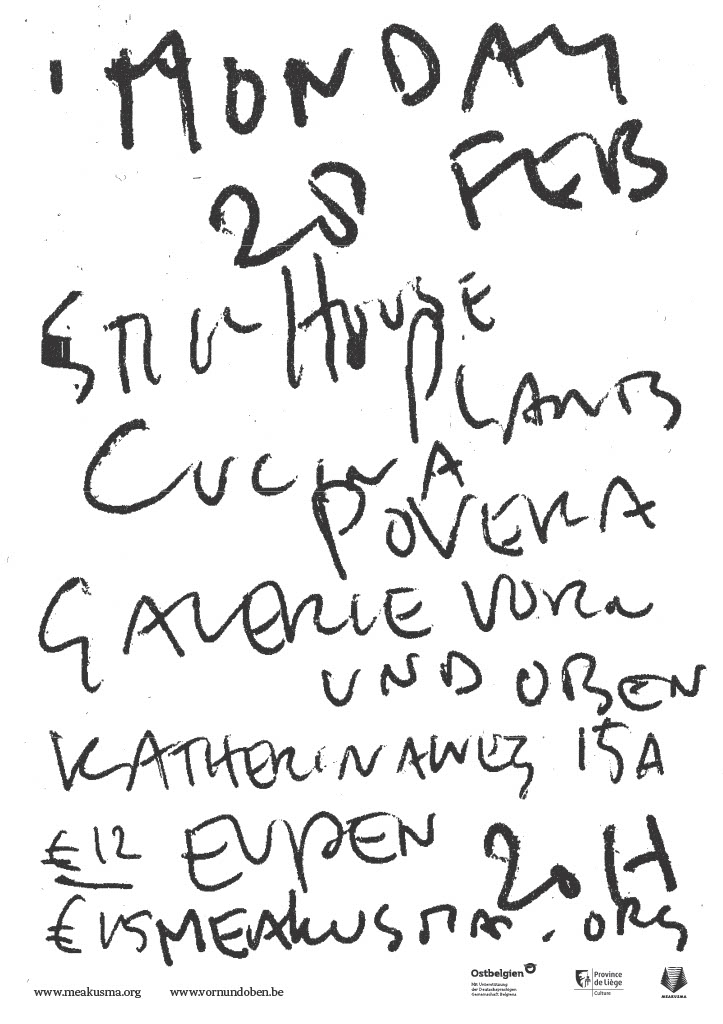 MONDAY
28 FEB
STILL HOUSE
PLANTS
CUCINA
POVERA
GALERIE VORN
UND OBEN
KATHERINAWEG 15A
€12 EUPEN 20H
€15 MEAKUSMA.ORG
www.meakusma.org www.vornundoben.be
Ostbelgien
Mit Unterstützung
der Deutschsprachigen
Gemeinschaft Belgiens
Province
de Liège
Culture
MEAKUSMA